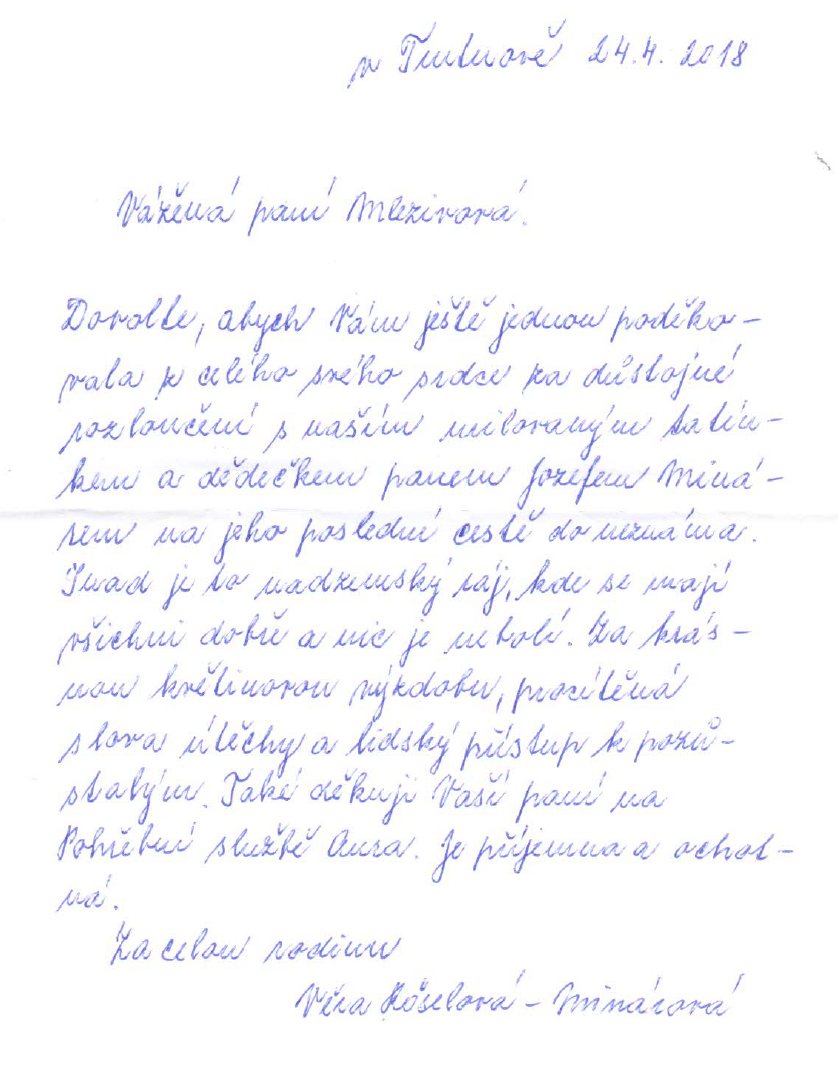 v Trutnově 24.4. 2018
Vážená paní Mlezivová.
Dovolte, abych Vám ještě jednou poděko-
vala z celého svého srdce za důstojné
rozloučení s naším milovaným tatín-
kem a dědečkem panem Jozefem Miná-
rem na jeho poslední cestě do neznáma.
Snad je to nadzemský ráj, kde se mají
všichni dobře a nic je nebolí. Za krás-
nou květinovou výzdobu, procítěná
slova útěchy a lidský přístup k pozů-
stalým. Také děkuji Vaší paní na
Pohřební službě Aura. Je příjemna a ochot-
ná.
Za celou rodinu
Věra Köselová - Minárová